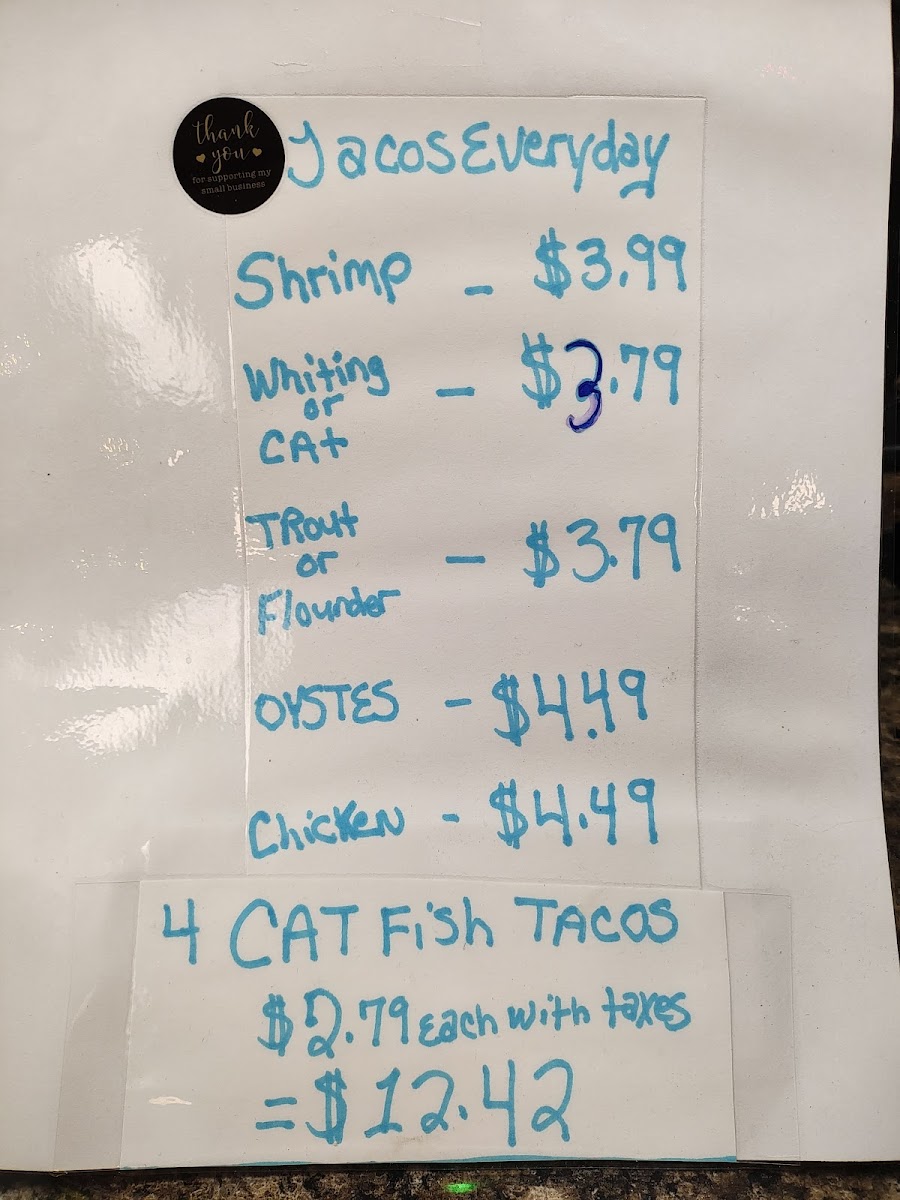 thank
you
for supporting my
small business
Tacos Everyday
Shrimp - $3.99
Whiting
or
CAt
- $3.79
TRout
or
Flounder
- $3.79
OYSTES - $4.49
Chicken - $4.49
4 CAT Fish TACOS
$2.79 Each with taxes
= $12.42